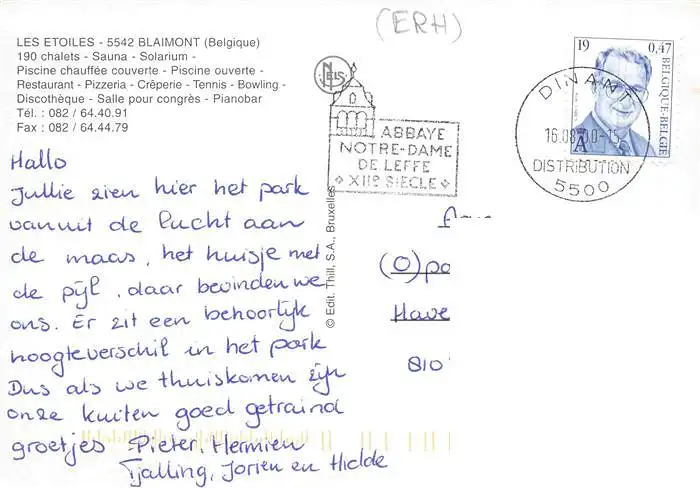 (ERH)
LES ETOILES - 5542 BLAIMONT (Belgique)
190 chalets - Sauna - Solarium -
Piscine chauffée couverte - Piscine ouverte -
Restaurant - Pizzeria - Crêperie - Tennis - Bowling -
Discothèque - Salle pour congrès - Pianobar
Tél. : 082 / 64.40.91
Fax : 082 / 64.44.79
NELS
ABBAYE
NOTRE-DAME
DE LEFFE
XIIe SIECLE
19 0,47
BELGIQUE-BELGIE
A
DINANT
16.08 00-15
DISTRIBUTION
5500
© Edit. Thill, S.A., Bruxelles
Hallo
Jullie zien hier het park
vanuit de lucht aan
de maas, het huisje met
de pijl, daar bevinden we
ons. Er zit een behoorlijk
hoogteverschil in het park
Dus als we thuiskomen zijn
onze kuiten goed getraind
groetjes Pieter, Hermien
Tjalling, Jorien en Hidde
(O)pa
Have
810